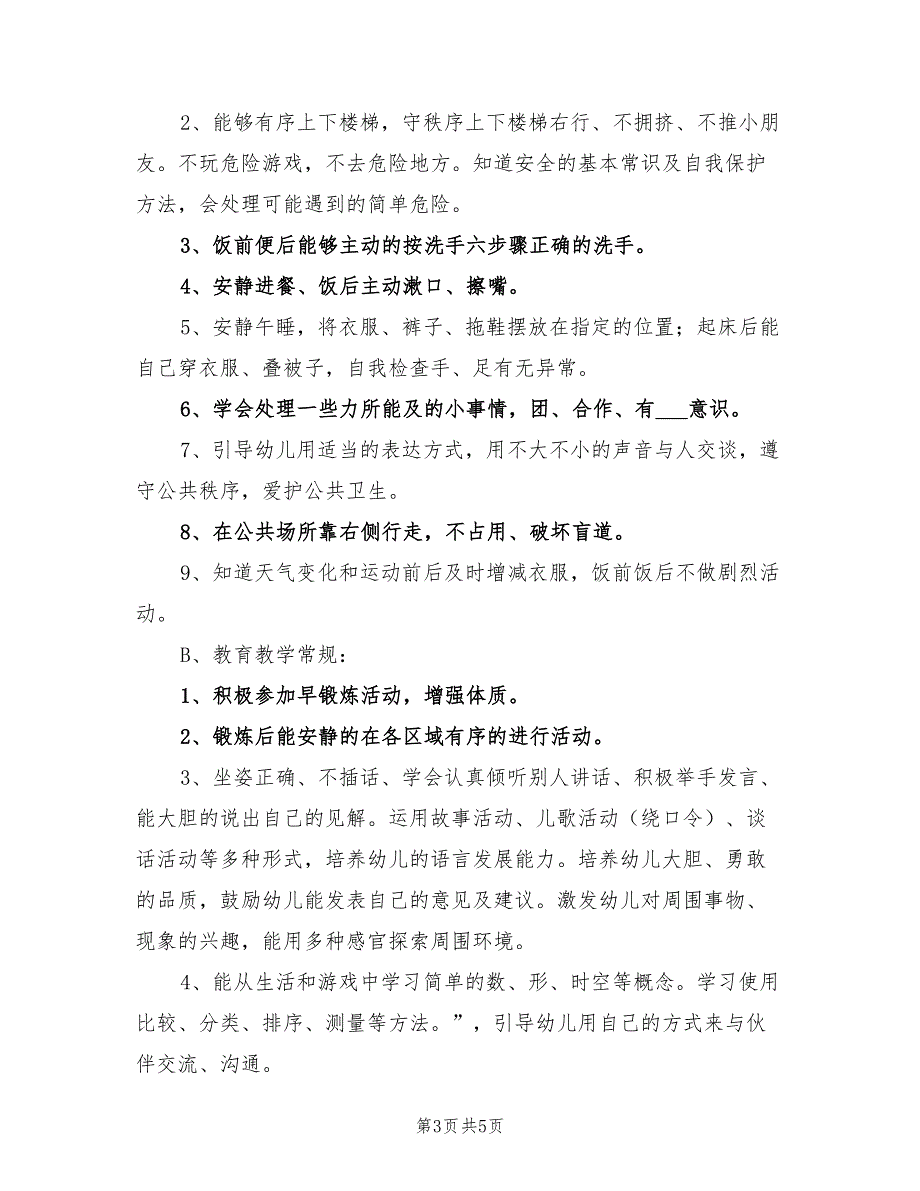 2、能够有序上下楼梯，守秩序上下楼梯右行、不拥挤、不推小朋
友。不玩危险游戏，不去危险地方。知道安全的基本常识及自我保护
方法，会处理可能遇到的简单危险。
3、饭前便后能够主动的按洗手六步骤正确的洗手。
4、安静进餐、饭后主动漱口、擦嘴。
5、安静午睡，将衣服、裤子、拖鞋摆放在指定的位置；起床后能
自己穿衣服、叠被子，自我检查手、足有无异常。
6、学会处理一些力所能及的小事情，团、合作、有___意识。
7、引导幼儿用适当的表达方式，用不大不小的声音与人交谈，遵
守公共秩序，爱护公共卫生。
8、在公共场所靠右侧行走，不占用、破坏盲道。
9、知道天气变化和运动前后及时增减衣服，饭前饭后不做剧烈活
动。
B、教育教学常规：
1、积极参加早锻炼活动，增强体质。
2、锻炼后能安静的在各区域有序的进行活动。
3、坐姿正确、不插话、学会认真倾听别人讲话、积极举手发言、
能大胆的说出自己的见解。运用故事活动、儿歌活动（绕口令）、谈
话活动等多种形式，培养幼儿的语言发展能力。培养幼儿大胆、勇敢
的品质，鼓励幼儿能发表自己的意见及建议。激发幼儿对周围事物、
现象的兴趣，能用多种感官探索周围环境。
4、能从生活和游戏中学习简单的数、形、时空等概念。学习使用
比较、分类、排序、测量等方法。”，引导幼儿用自己的方式来与伙
伴交流、沟通。
第3页共5页